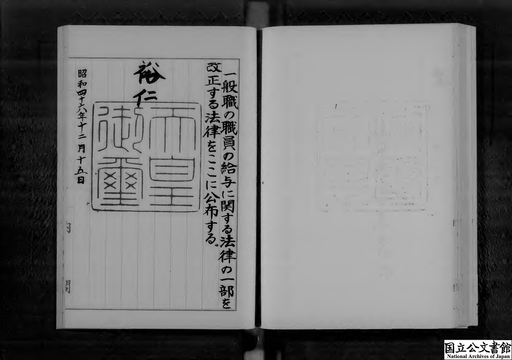 一般職の職員の給与に関する法律の一部を
改正する法律をここに公布する。
裕仁
天皇
御璽
昭和四十六年十二月十五日
国立公文書館
National Archives of Japan